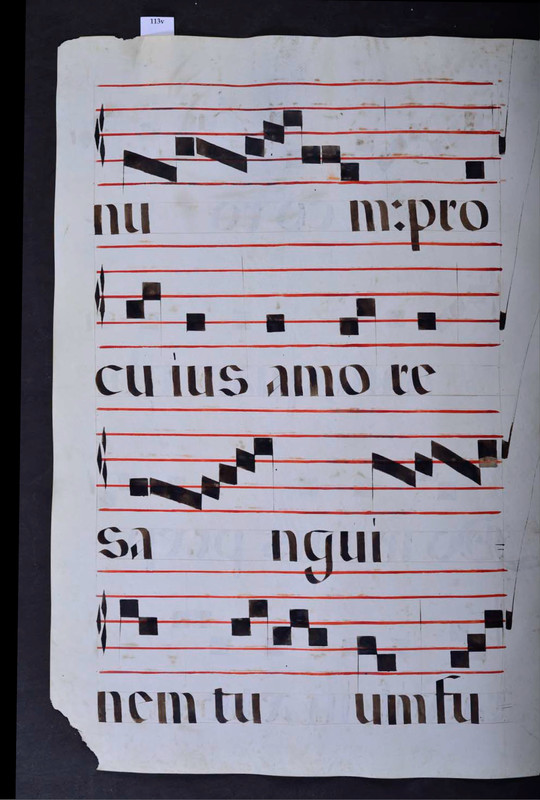 113v
nu m:pro
cu ius amo re
sa ngui
nem tu um fu